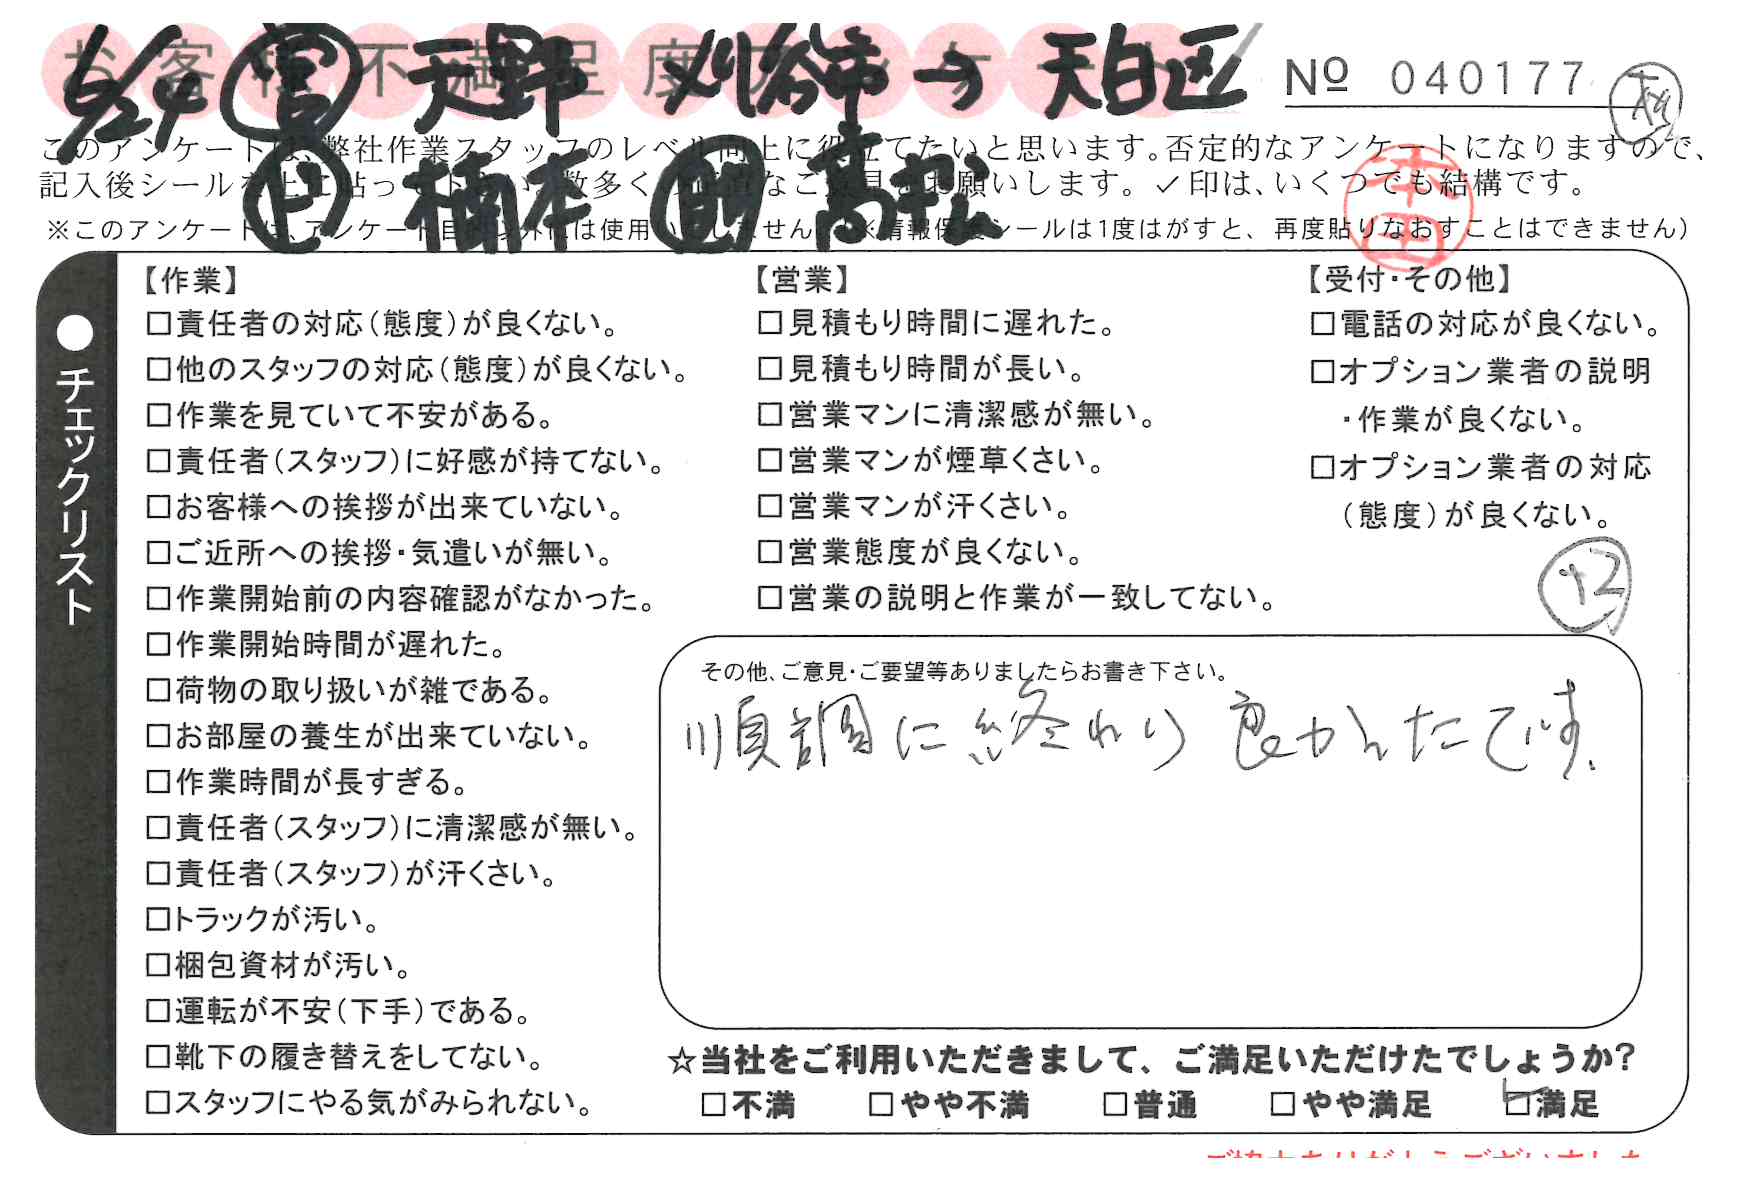 お客様不満足度アンケート
6/24 営 天野 刈谷市→天白区
№ 040177
このアンケートは、弊社作業スタッフのレベル向上に役立てたいと思います。否定的なアンケートになりますので、
記入後シールを上に貼って下さい。数多くの正直なご意見をお願いします。✓印は、いくつでも結構です。
ピ 楠本 助 髙松
本田
※このアンケートは、アンケート目的以外には使用いたしません。(※情報保護シールは1度はがすと、再度貼りなおすことはできません)
●チェックリスト
【作業】
□責任者の対応(態度)が良くない。
□他のスタッフの対応(態度)が良くない。
□作業を見ていて不安がある。
□責任者(スタッフ)に好感が持てない。
□お客様への挨拶が出来ていない。
□ご近所への挨拶・気遣いが無い。
□作業開始前の内容確認がなかった。
□作業開始時間が遅れた。
□荷物の取り扱いが雑である。
□お部屋の養生が出来ていない。
□作業時間が長すぎる。
□責任者(スタッフ)に清潔感が無い。
□責任者(スタッフ)が汗くさい。
□トラックが汚い。
□梱包資材が汚い。
□運転が不安(下手)である。
□靴下の履き替えをしてない。
□スタッフにやる気がみられない。
【営業】
□見積もり時間に遅れた。
□見積もり時間が長い。
□営業マンに清潔感が無い。
□営業マンが煙草くさい。
□営業マンが汗くさい。
□営業態度が良くない。
□営業の説明と作業が一致してない。
【受付・その他】
□電話の対応が良くない。
□オプション業者の説明
・作業が良くない。
□オプション業者の対応
(態度)が良くない。
+2
その他、ご意見・ご要望等ありましたらお書き下さい。
順調に終わり良かったです.
☆当社をご利用いただきまして、ご満足いただけたでしょうか?
□不満 □やや不満 □普通 □やや満足 ☑満足
ご協力ありがとうございました